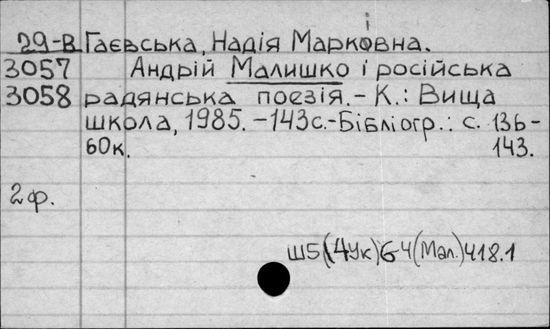 29-В Гаєвська, Надія Марківна.
3057 Андрій Малишко і російська
3058 радянська поезія. - К.: Вища
школа, 1985. - 143 с. - Бібліогр.: с. 136-
60к. 143.
2 ф.
Ш5(4Ук)6-4(Мал.)418.1